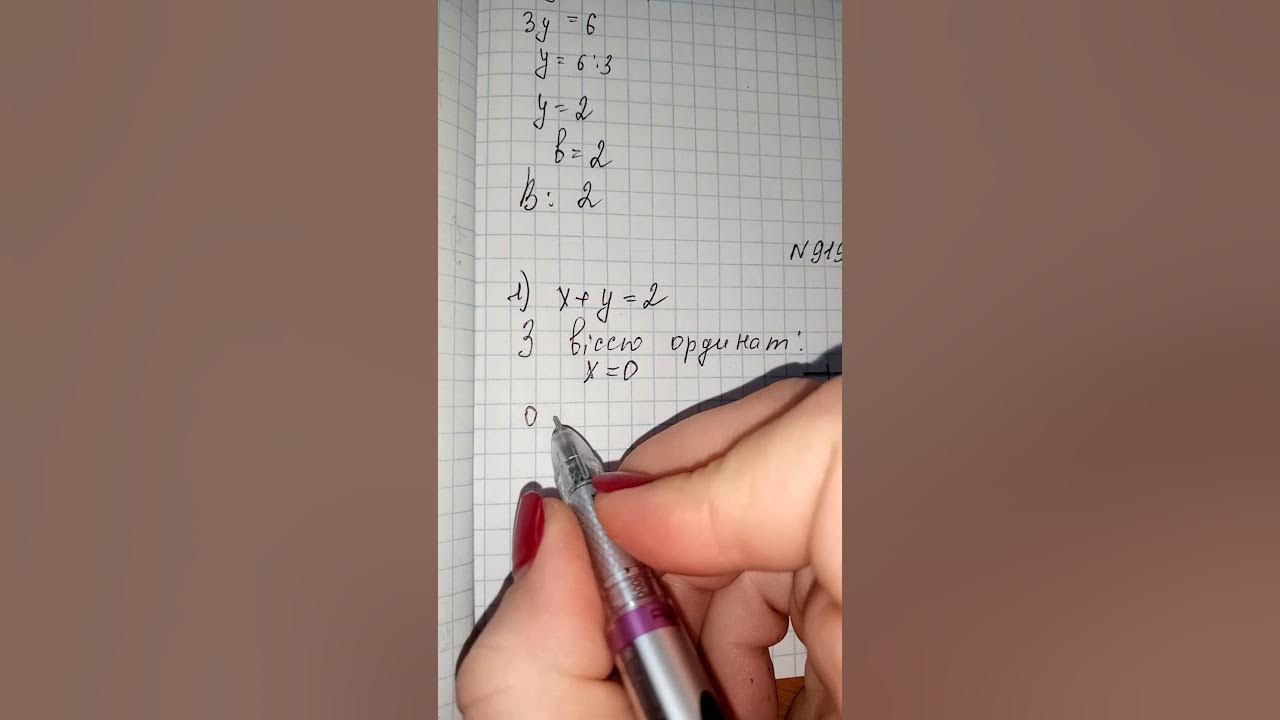 3y = 6
y = 6:3
y = 2
b = 2
В: 2
N 919
1) x + y = 2
З віссю ординат:
x = 0
0